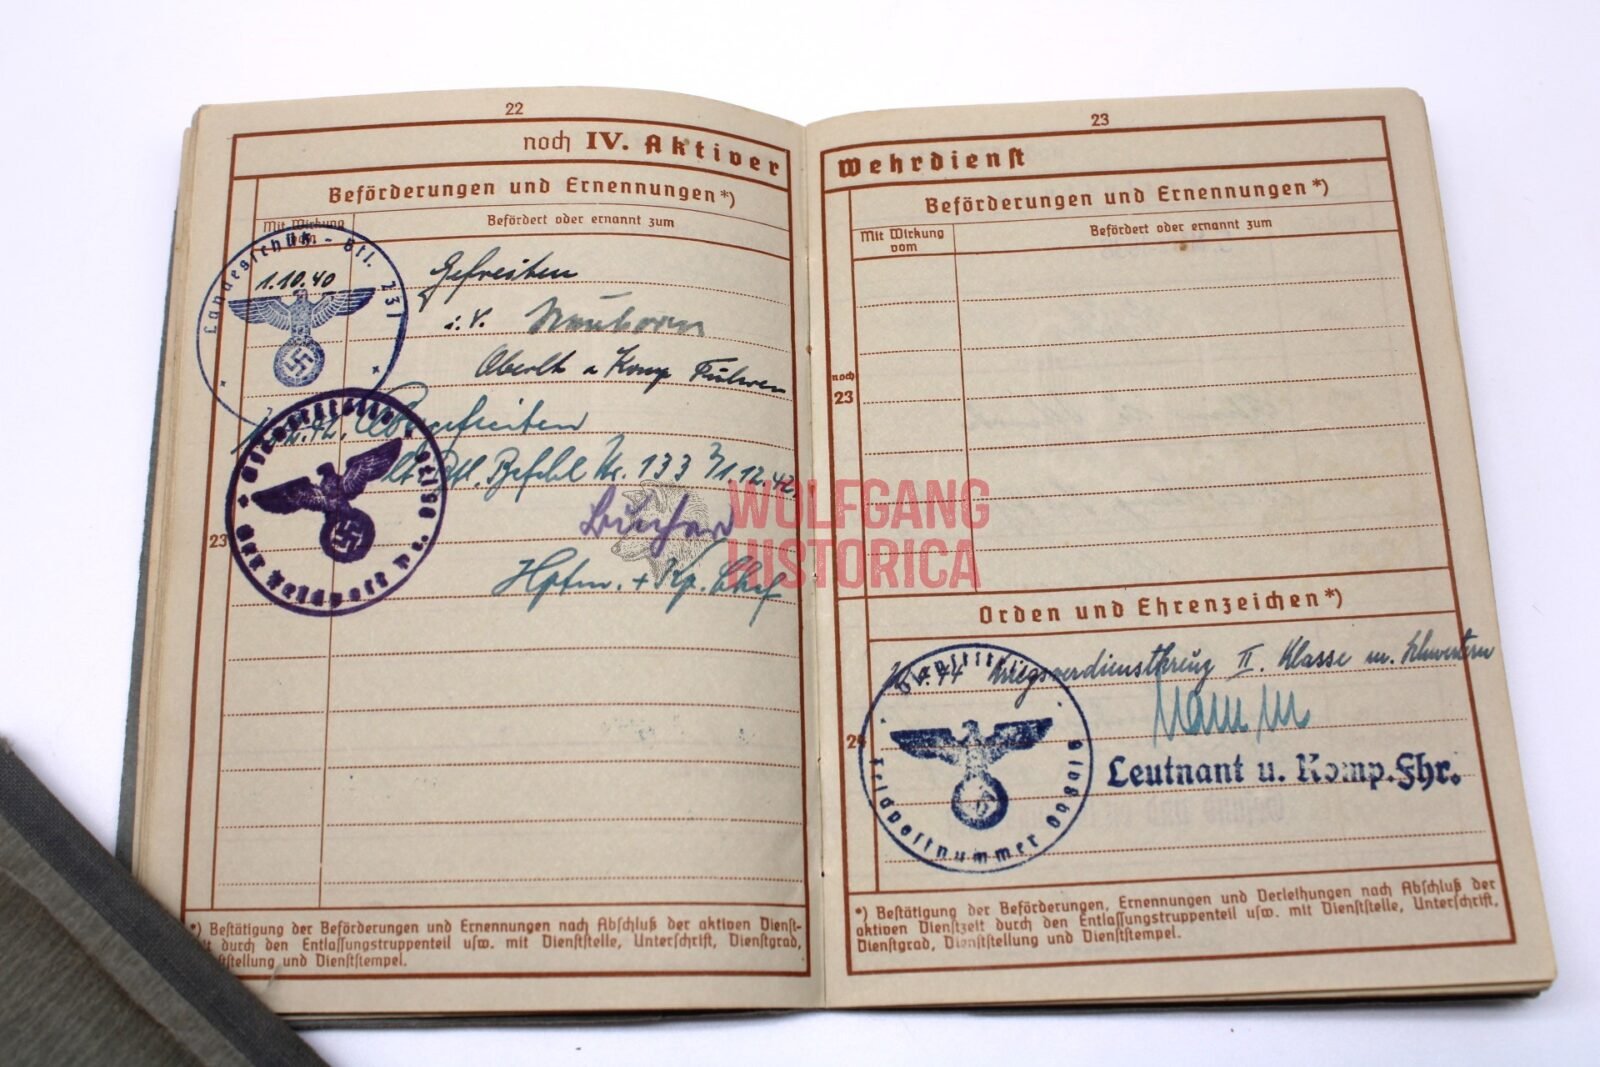 22
noch IV. Aktiver
Beförderungen und Ernennungen*)
Mit Wirkung vom
Befördert oder ernannt zum
Landesschütz.-Btl. 231
1.10.40
Gefreiten
i.V.
Oberlt u Komp Führer
Obergefreiten
lt. Btl. Befehl Nr. 133 1.12.42.
23
Hptm. + Kp. Chef
Dienststelle
Feldpost
*) Bestätigung der Beförderungen und Ernennungen nach Abschluß der aktiven Dienst-
durch den Entlassungstruppenteil usw. mit Dienststelle, Unterschrift, Dienstgrad,
stellung und Dienststempel.
23
Wehrdienst
Beförderungen und Ernennungen*)
Mit Wirkung vom
Befördert oder ernannt zum
noch
23
WOLFGANG
HISTORICA
Orden und Ehrenzeichen*)
44 Kriegsverdienstkreuz II. Klasse m. Schwertern
24
Dienststelle
Feldpostnummer
Leutnant u. Komp.Fhr.
*) Bestätigung der Beförderungen, Ernennungen und Verleihungen nach Abschluß der
aktiven Dienstzeit durch den Entlassungstruppenteil usw. mit Dienststelle, Unterschrift,
Dienstgrad, Dienststellung und Dienststempel.